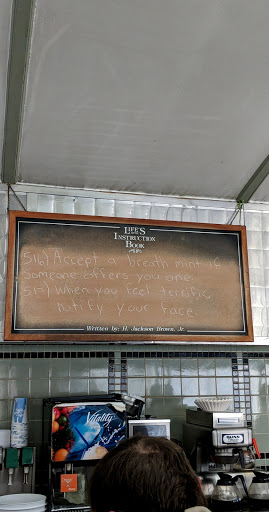 LIFE'S
INSTRUCTION
BOOK
516) Accept a breath mint if
someone offers you one.
517) When you feel terrific,
notify your face
Written by: H. Jackson Brown, Jr.
Vitality
BUNN